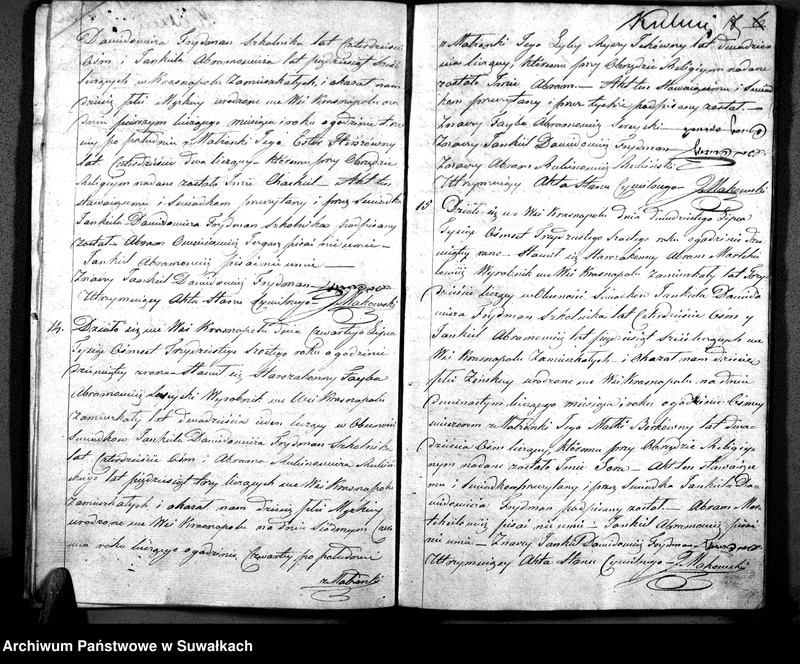 Dawidowicza Frydman Szkolnika lat Czterdzieści
Ośm i Jankiela Abramowicza lat pięćdziesiąt sześć
liczących w Krasnopolu zamieszkałych, i okazał nam
dziecię płci Męskiej urodzone we Wsi Krasnopolu na
dniu pierwszym bieżącego miesiąca i roku o godzinie
po południu z Małżonki Jego Ester
lat Czterdzieści dwa liczący któremu przy Obrzędzie
Religijnym nadane zostało Imie Chackiel – Akt ten
stawaiącemu i Świadkom przeczytany i przez Świadka
Jankiela Dawidowicza Frydman Szkolnika podpisany
został – Abram pisać nieumie –
Jankiel Abramowicz pisać nie umie –
Znawcy Jankiel Dawidowicz Frydman –
Utrzymuiący Akta Stanu Cywilnego JMakowski
14. Działo się we Wsi Krasnopolu dnia Czwartego Lipca
Tysiąc Ośmset Trzydziestego Szostego roku o godzinie
dziewiątey zrana – Stawił się Starozakonny Fayba
Abramowicz Wyrobnik we Wsi Krasnopolu
zamieszkały lat dwadzieścia ieden liczący w Obecności
Świadków Jankiela Dawidowicza Frydman Szkolnika
lat Czterdzieście Ośm i Abrama Rubinowicza
lat pięćdziesiąt trzy liczących we Wsi Krasnopolu
Zamieszkałych i okazał nam dziecię płci Męskiey
urodzone we Wsi Krasnopolu na dniu Siódmym Czer
wca roku bieżącego o godzinie Czwartey po południu
z Małżonki
z Małżonki Jego lat dwadzieścia
liczący, któremu przy Obrzędzie Religiynym nadane
zostało Imie Abram – Akt ten stawaiącemu i Świad
kom przeczytany i przez tychże podpisany został –
Znawcy Fayba Abramowicz
Znawcy Jankiel Dawidowicz Frydman
Znawcy Abram Rubinowicz Rubiński
Utrzymuiący Akta Stanu Cywilnego – JMakowski
15 Działo się we Wsi Krasnopolu dnia dwudziestego Lipca
Tysiąc Ośmset Trzydziestego Szostego roku o godzinie dzie
wiątey rano – Stawił się Starozakonny Abram
Wyrobnik we Wsi Krasnopolu zamieszkały lat Trzy
dzieści liczący w Obecności Świadków Jankiela Dawido
wicza Frydman Szkolnika lat Czterdzieście Ośm i
Jankiel Abramowicz lat pięćdziesiąt Sześć liczących we
Wsi Krasnopolu Zamieszkałych – i okazał nam dziecię
płci Żeńskiey urodzone we Wsi Krasnopolu na dniu
dwunastym bieżącego miesiąca i roku o godzinie Ośmey
wieczorem z Małżonki Jego Małki Berkowny lat dwa
dzieścia Ośm liczący, któremu przy Obrzędzie Religiy
nym nadane zostało Imie – Akt ten stawaiące
mu i Świadkom przeczytany i przez Świadka Jankiela Da
widowicza Frydman podpisany został – Abram
pisać nie umie – Jankiel Abramowicz pisać
nie umie – Znawcy Jankiel Dawidowicz Frydman –
Utrzymuiący Akta Stanu Cywilnego – JMakowski
Archiwum Państwowe w Suwałkach